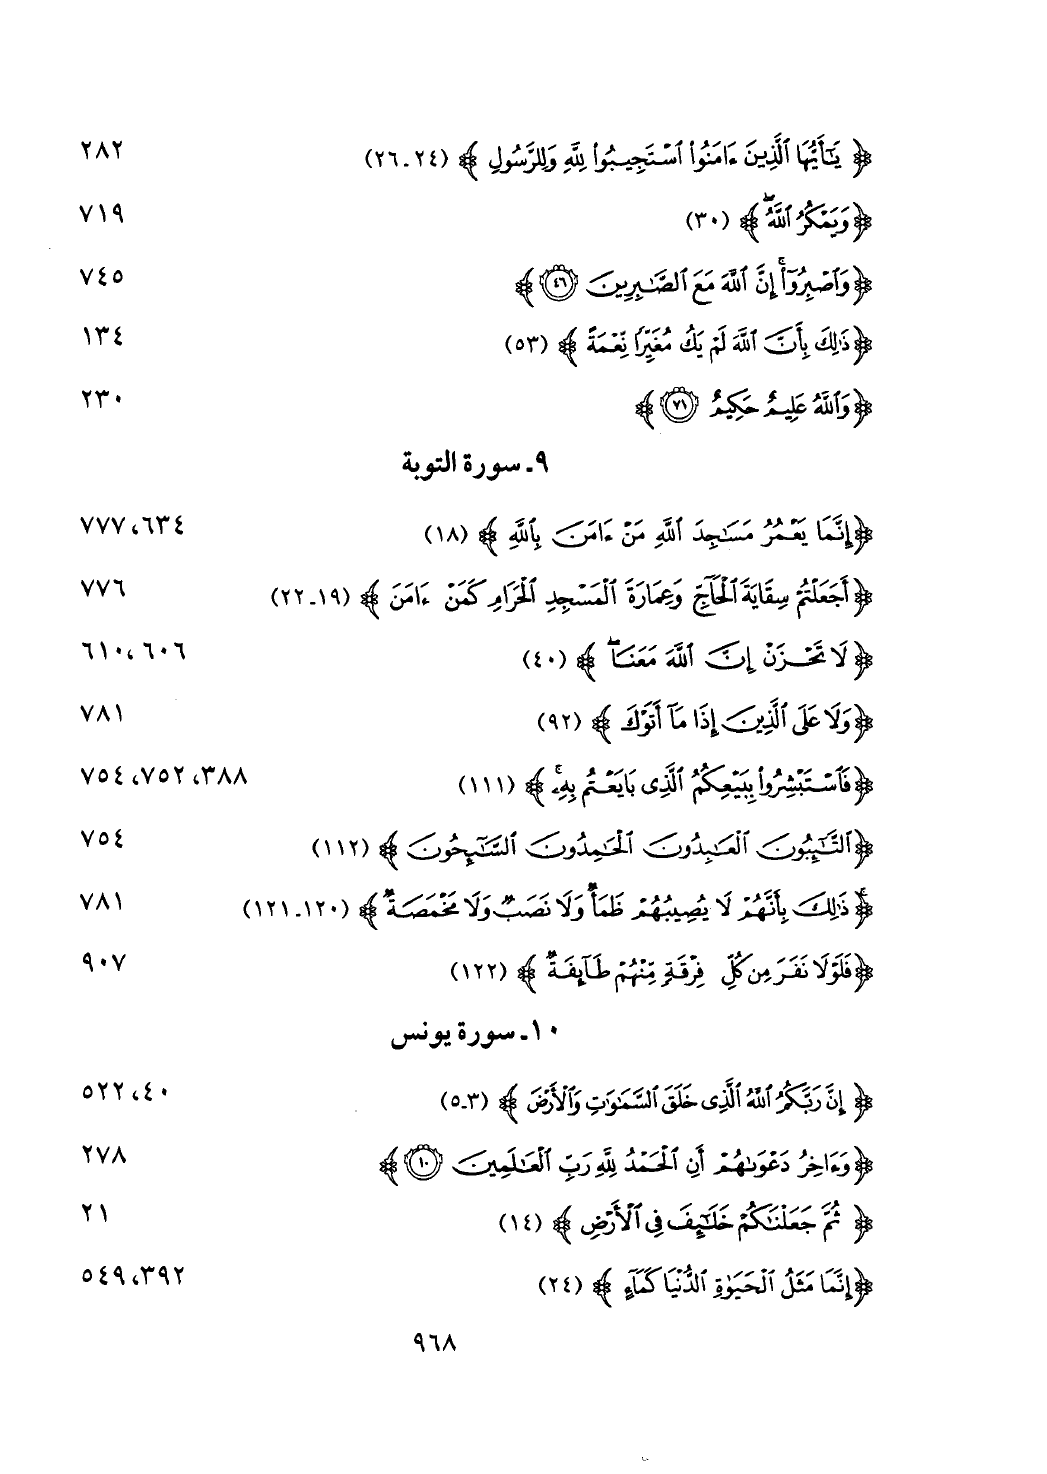 ﴿ يَـٰٓأَيُّهَا ٱلَّذِينَ ءَامَنُوا۟ ٱسْتَجِيبُوا۟ لِلَّهِ وَلِلرَّسُولِ ﴾ (٢٤ـ٢٦) ٢٨٢
﴿وَيَمْكُرُ ٱللَّهُ ۖ﴾ (٣٠) ٧١٩
﴿وَٱصْبِرُوٓا۟ ۚ إِنَّ ٱللَّهَ مَعَ ٱلصَّـٰبِرِينَ ٤٦﴾ ٧٤٥
﴿ذَٰلِكَ بِأَنَّ ٱللَّهَ لَمْ يَكُ مُغَيِّرًا نِّعْمَةً ﴾ (٥٣) ١٣٤
﴿وَٱللَّهُ عَلِيمٌ حَكِيمٌ ٧١﴾ ٢٣٠
٩ـ سورة التوبة
﴿إِنَّمَا يَعْمُرُ مَسَـٰجِدَ ٱللَّهِ مَنْ ءَامَنَ بِٱللَّهِ ﴾ (١٨) ٦٣٤، ٧٧٧
﴿أَجَعَلْتُمْ سِقَايَةَ ٱلْحَآجِّ وَعِمَارَةَ ٱلْمَسْجِدِ ٱلْحَرَامِ كَمَنْ ءَامَنَ ﴾ (١٩ـ٢٢) ٧٧٦
﴿ لَا تَحْزَنْ إِنَّ ٱللَّهَ مَعَنَا ۖ ﴾ (٤٠) ٦٠٦، ٦١٠
﴿وَلَا عَلَى ٱلَّذِينَ إِذَا مَآ أَتَوْكَ ﴾ (٩٢) ٧٨١
﴿فَٱسْتَبْشِرُوا۟ بِبَيْعِكُمُ ٱلَّذِى بَايَعْتُم بِهِۦ ۚ ﴾ (١١١) ٣٨٨، ٧٥٢، ٧٥٤
﴿ٱلتَّـٰٓئِبُونَ ٱلْعَـٰبِدُونَ ٱلْحَـٰمِدُونَ ٱلسَّـٰٓئِحُونَ ﴾ (١١٢) ٧٥٤
﴿ ۚ ذَٰلِكَ بِأَنَّهُمْ لَا يُصِيبُهُمْ ظَمَأٌ وَلَا نَصَبٌ وَلَا مَخْمَصَةٌ ﴾ (١٢٠ـ١٢١) ٧٨١
﴿فَلَوْلَا نَفَرَ مِن كُلِّ فِرْقَةٍ مِّنْهُمْ طَآئِفَةٌ ﴾ (١٢٢) ٩٠٧
١٠ـ سورة يونس
﴿ إِنَّ رَبَّكُمُ ٱللَّهُ ٱلَّذِى خَلَقَ ٱلسَّمَـٰوَٰتِ وَٱلْأَرْضَ ﴾ (٣ـ٥) ٤٠، ٥٢٢
﴿وَءَاخِرُ دَعْوَىٰهُمْ أَنِ ٱلْحَمْدُ لِلَّهِ رَبِّ ٱلْعَـٰلَمِينَ ١٠﴾ ٢٧٨
﴿ ثُمَّ جَعَلْنَـٰكُمْ خَلَـٰٓئِفَ فِى ٱلْأَرْضِ ﴾ (١٤) ٢١
﴿إِنَّمَا مَثَلُ ٱلْحَيَوٰةِ ٱلدُّنْيَا كَمَآءٍ ﴾ (٢٤) ٣٩٢، ٥٤٩
٩٦٨